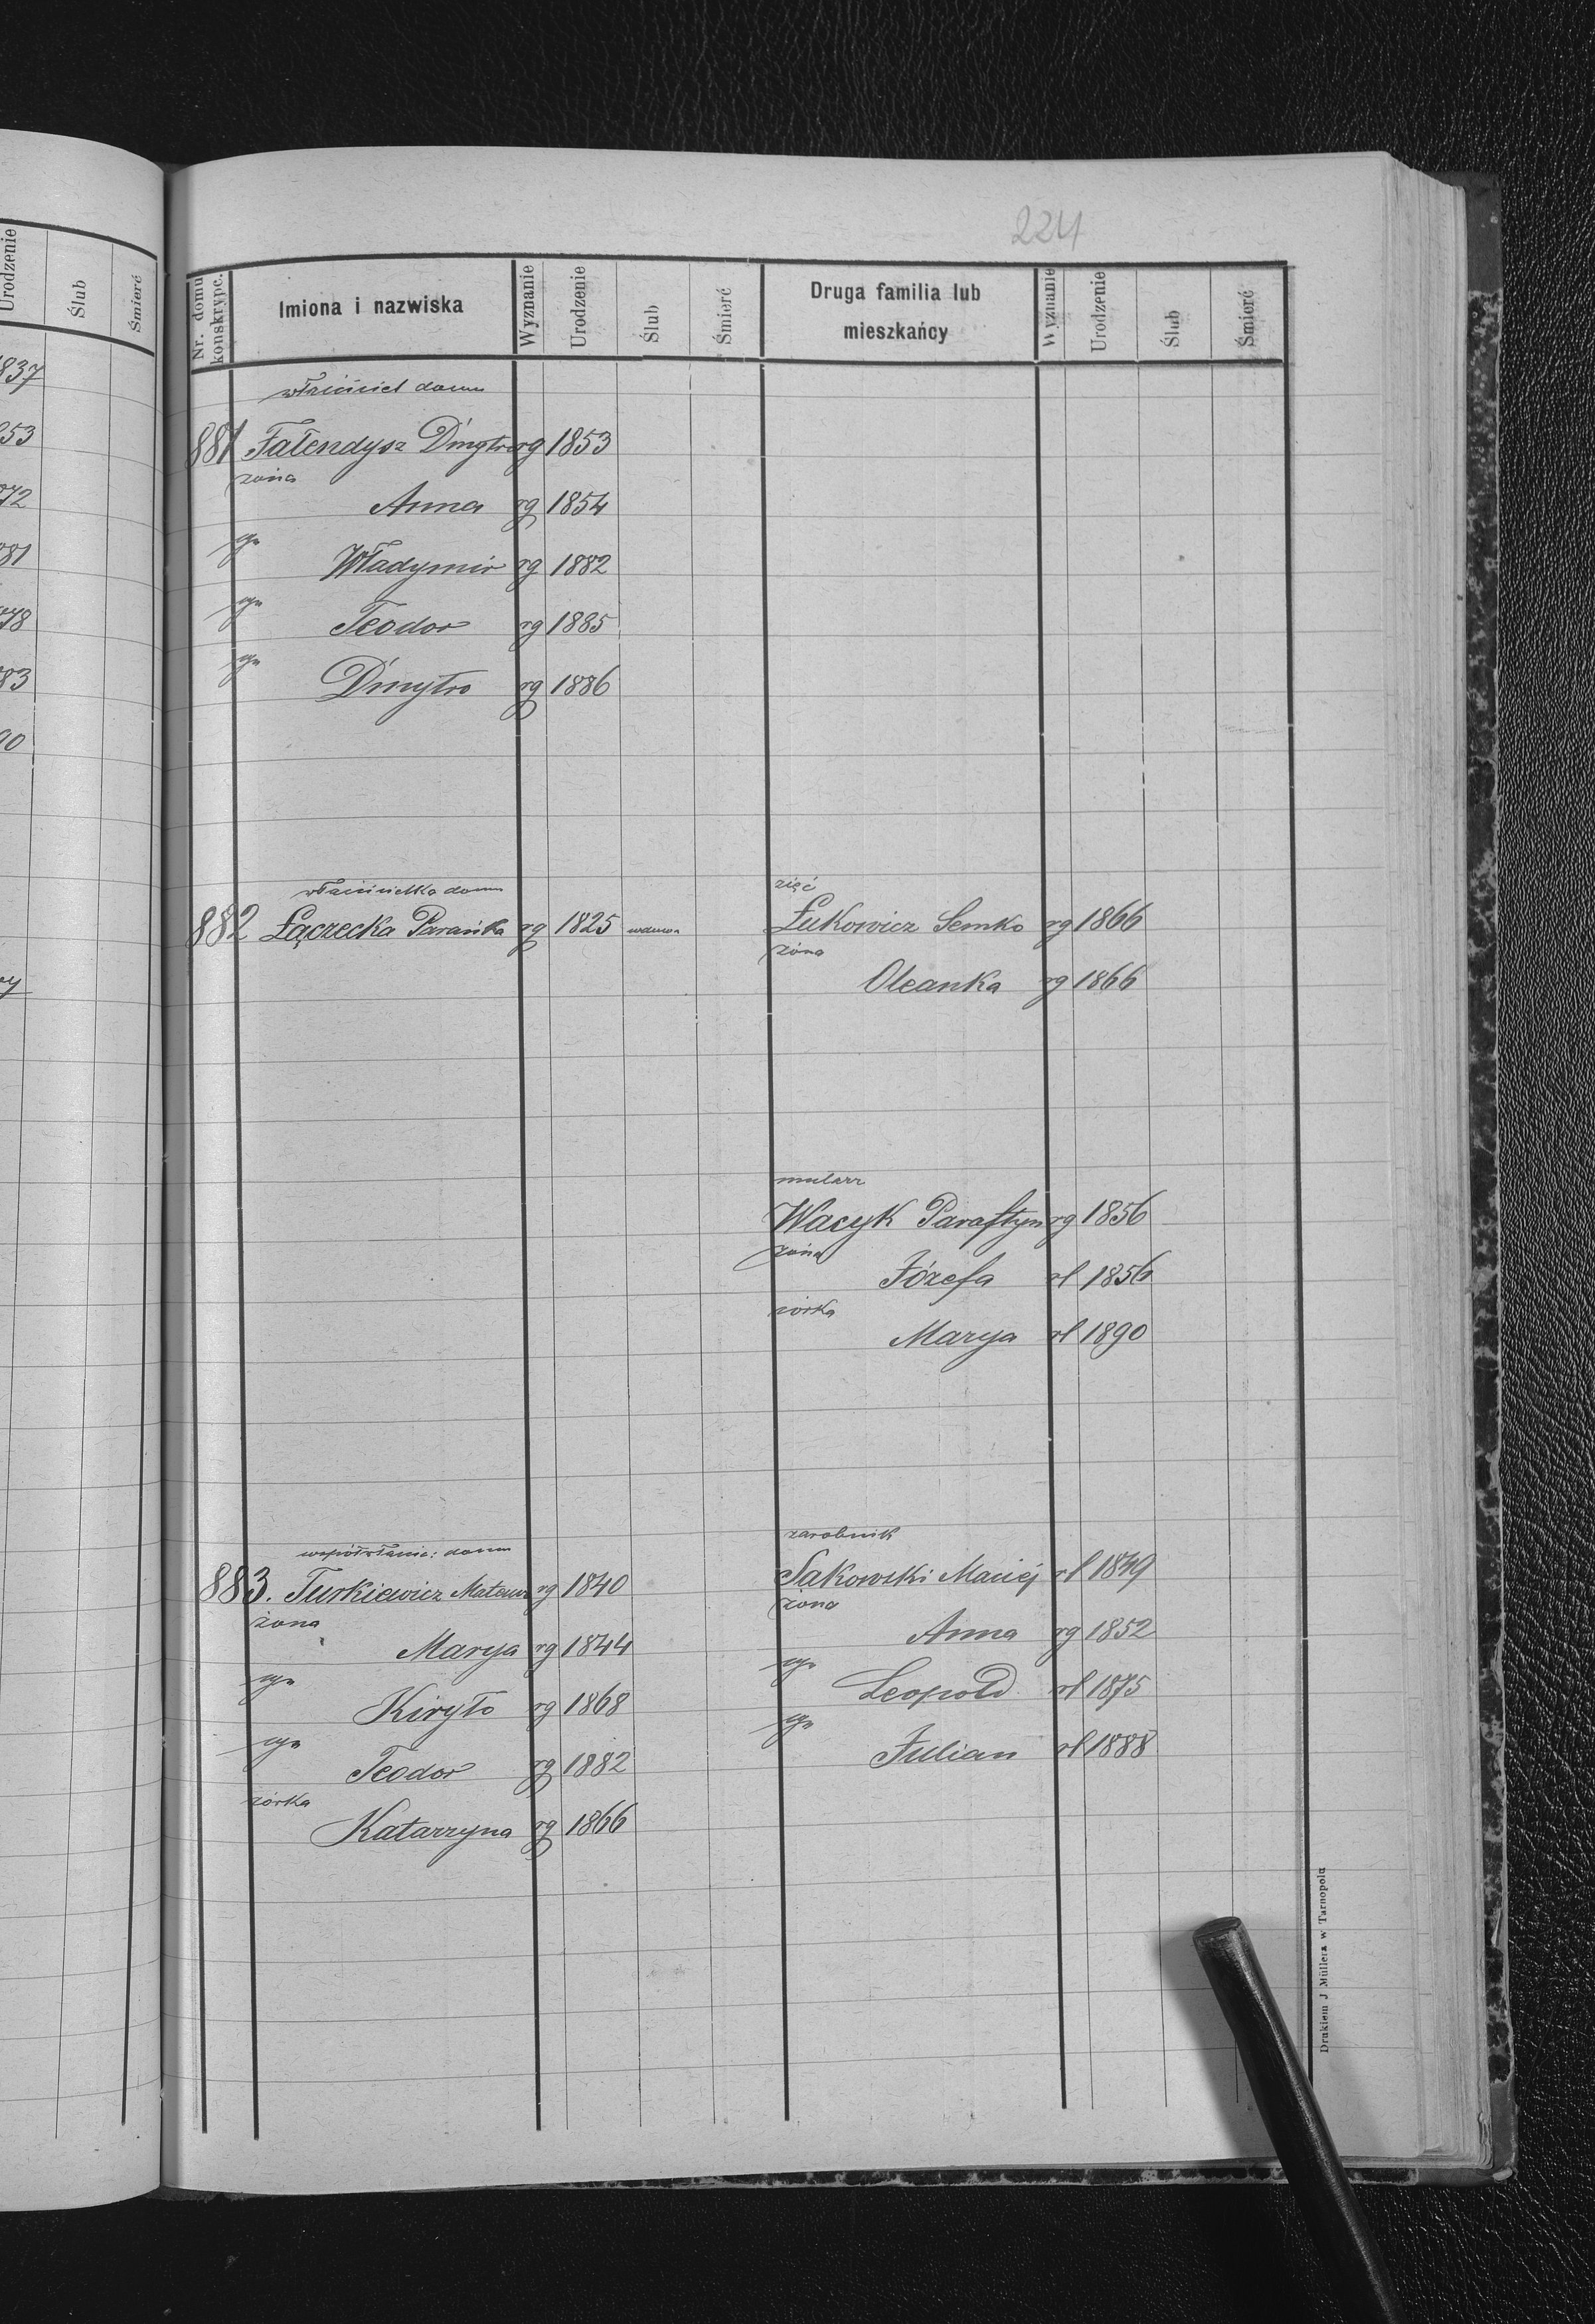 Urodzenie
Ślub
Śmierć
837
853
872
881
878
883
90
224
Nr. domu konskrypc.
Imiona i nazwiska
Wyznanie
Urodzenie
Ślub
Śmierć
Druga familia lub mieszkańcy
Wyznanie
Urodzenie
Ślub
Śmierć
właściciel domu
881 Fałendysz Dmytro rg 1853
żona
Anna rg 1854
syn
Władymir rg 1882
syn
Teodor rg 1885
syn
Dmytro rg 1886
właścicielka domu
882 Łączecka Parańka rg 1825 wdowa
zięć
Łukowicz Semko rg 1866
żona
Oleanka rg 1866
mularz
Wacyk Paraftyn rg 1856
żona
Józefa rł 1856
córka
Marya rł 1890
współwłaśc: domu
883. Turkiewicz Mateusz rg 1840
żona
Marya rg 1844
syn
Kiryło rg 1868
syn
Teodor rg 1882
córka
Katarzyna rg 1866
zarobnik
Sakowski Maciej rł 1849
żona
Anna rg 1852
syn
Leopold rł 1875
syn
Julian rł 1888
Drukiem J Müllera w Tarnopolu